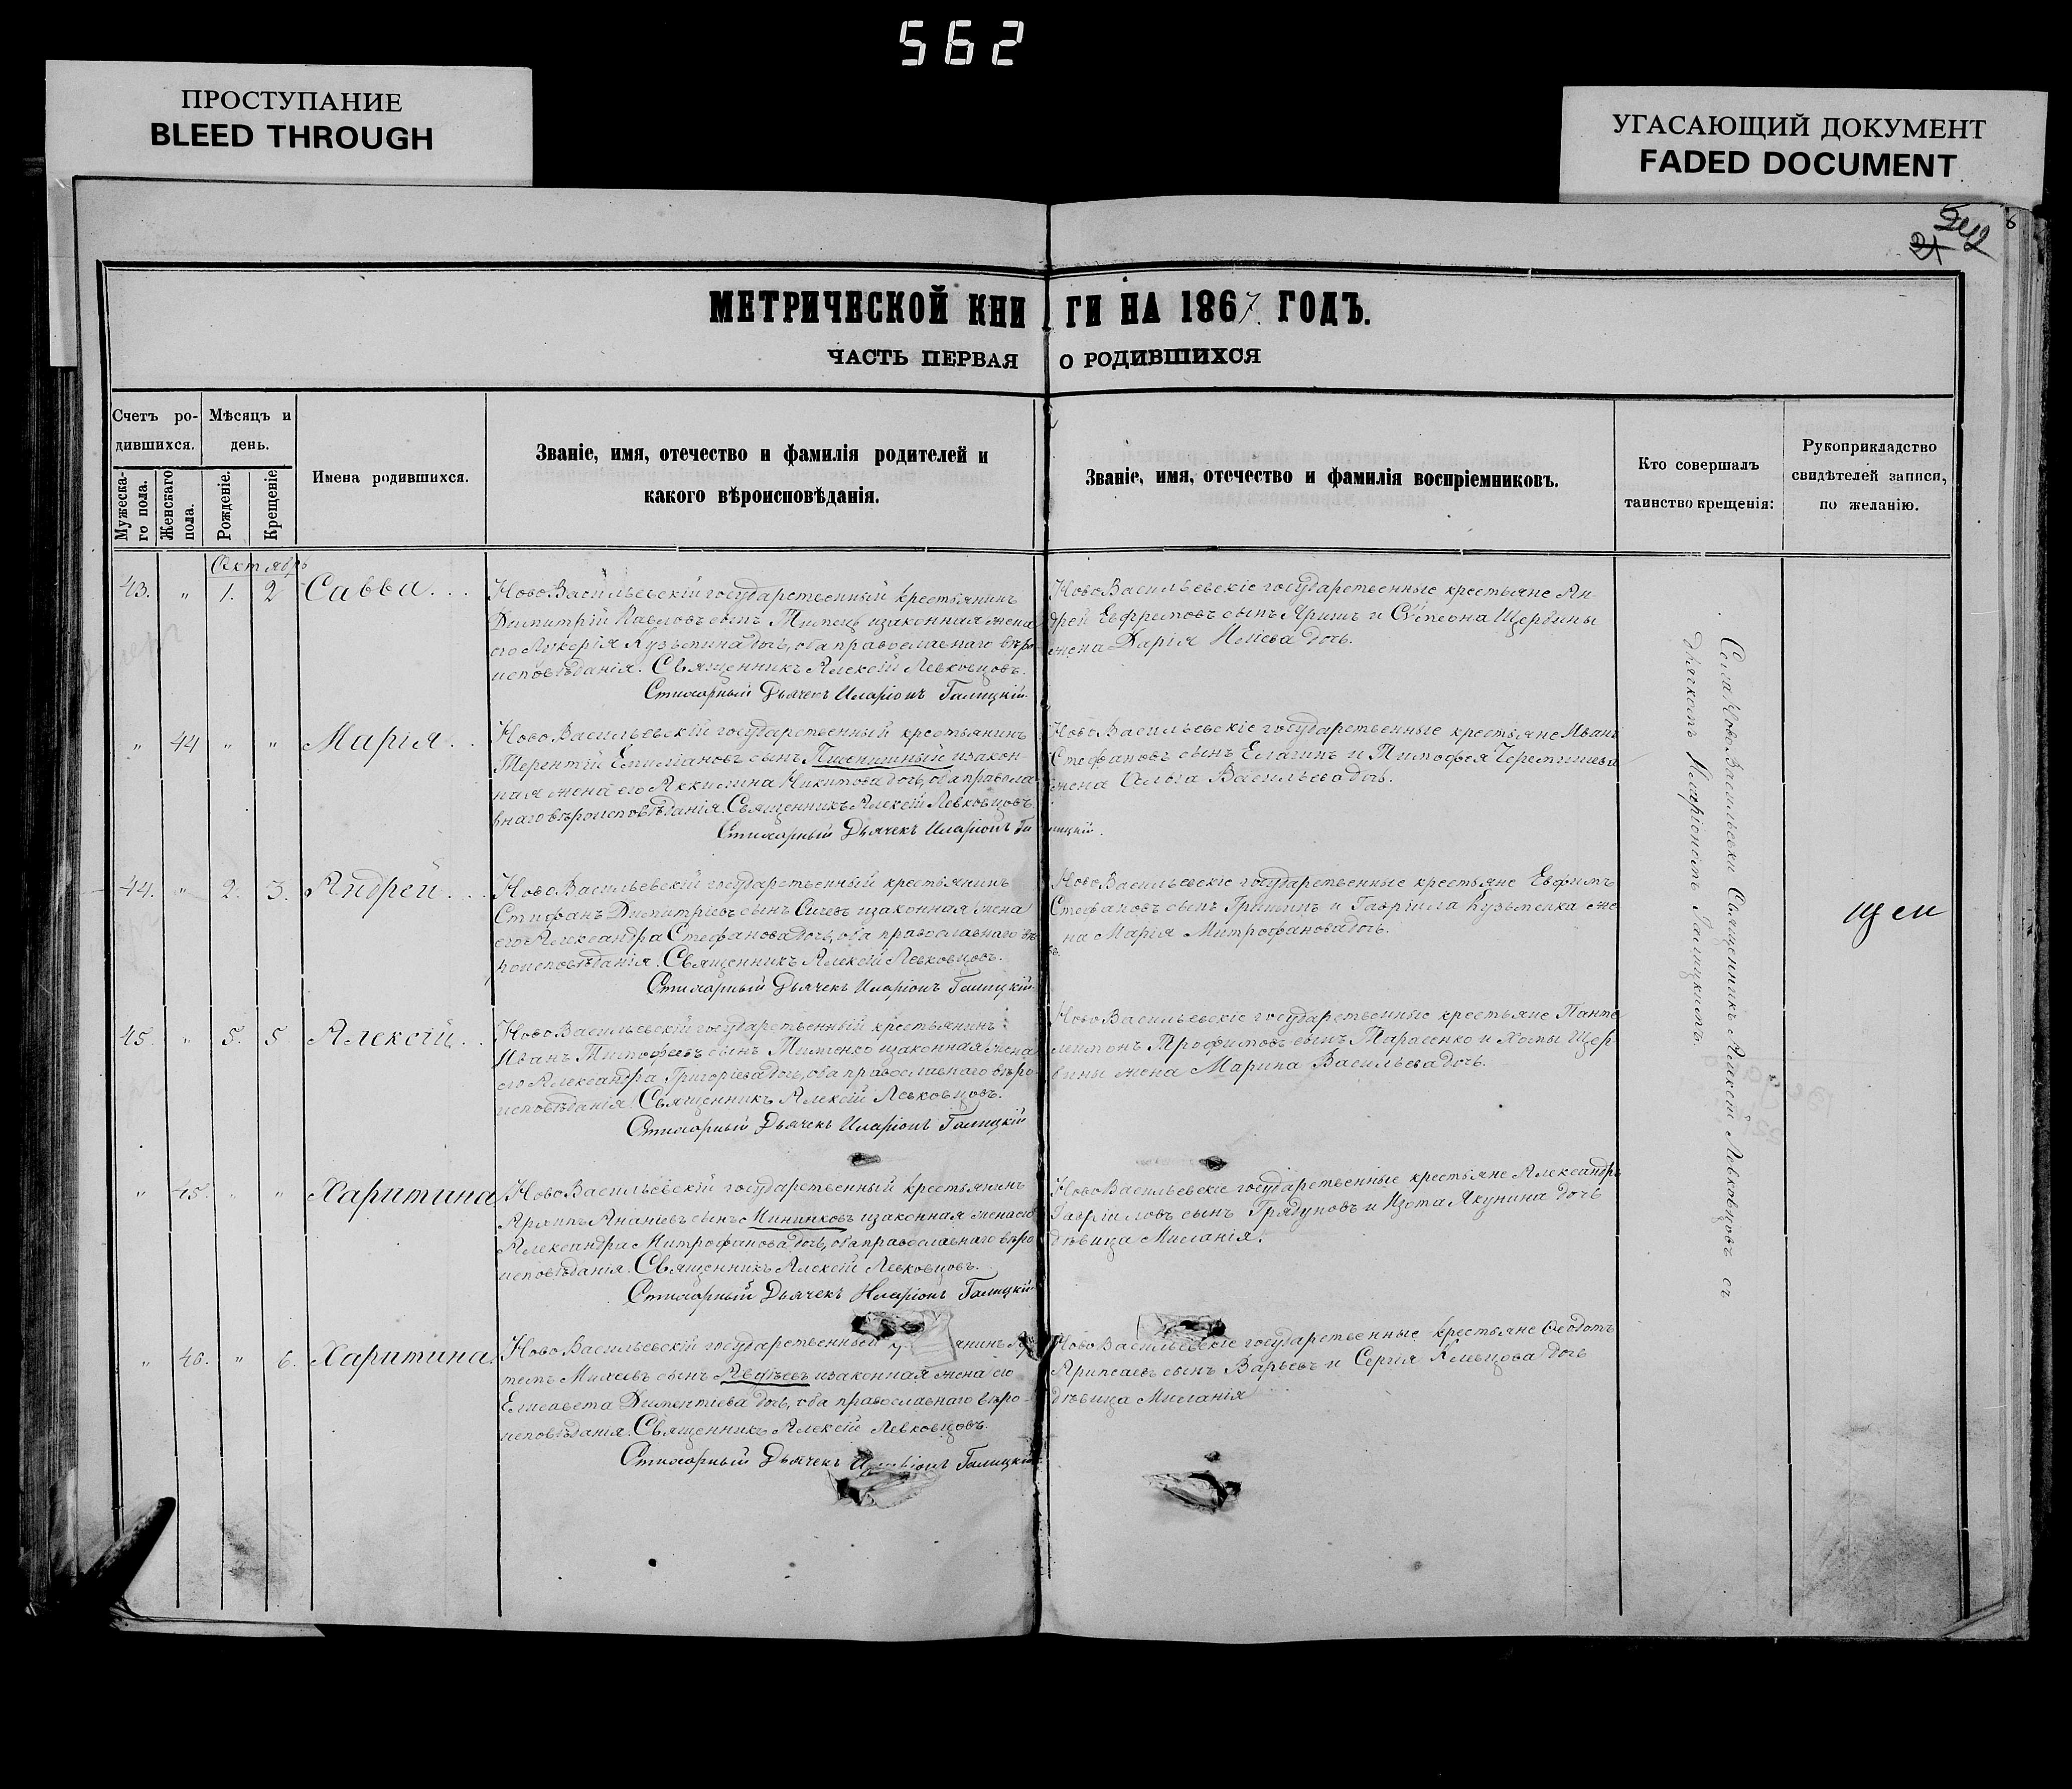 562
ПРОСТУПАНИЕ
BLEED THROUGH
УГАСАЮЩИЙ ДОКУМЕНТ
FADED DOCUMENT
МЕТРИЧЕСКОЙ КНИГИ НА 1867 ГОДЪ.
ЧАСТЬ ПЕРВАЯ О РОДИВШИХСЯ
Счетъ ро-
дившихся.
Мѣсяцъ и
день.
Мужеска-
го пола.
Женскаго
пола.
Рожденіе.
Крещеніе
Имена родившихся.
Званіе, имя, отечество и фамилія родителей и
какого вѣроисповѣданія.
Званіе, имя, отечество и фамилія воспріемниковъ.
Кто совершалъ
таинство крещенія:
Рукоприкладство
свидѣтелей записи,
по желанію.
Октябрь
43. " 1. 2 Савва...
НовоВасильевскій государственный крестьянинъ
Димитрій Павловъ сынъ изаконная жена
его Кузьмина дочь, оба православнаго вѣро-
исповѣданія. Священникъ Алексій Левковцовъ.
Стихарный Дьячекъ Иларіонъ Галицкій.
НовоВасильевскіе государственные крестьяне Ан-
дрей сынъ и Сѵмеона Щербины
жена Дарія дочь.
" 44 " " Марія..
НовоВасильевскій государственный крестьянинъ
Терентій сынъ Пшеничный изакон-
ная жена его Никитова дочь, оба правосла-
внаго вѣроисповѣданія. Священникъ Алексій Левковцовъ.
Стихарный Дьячекъ Иларіонъ Галицкій.
НовоВасильевскіе государственные крестьяне Иванъ
Стефановъ сынъ Елагинъ и Тимофея
жена Ольга Васильева дочь.
44. " 2. 3. Андрей...
НовоВасильевскій государственный крестьянинъ
Стефанъ Димитріевъ сынъ изаконная жена
его Александра Стефанова дочь, оба православнаго вѣ-
роисповѣданія. Священникъ Алексій Левковцовъ.
Стихарный Дьячекъ Иларіонъ Галицкій.
НовоВасильевскіе государственные крестьяне Евфимъ
Стефановъ сынъ и Гавріила Кузьменка же-
на Марія Митрофанова дочь.
45. " 5. 5 Алексій..
НовоВасильевскій государственный крестьянинъ
Иванъ Тимофеевъ сынъ Тимченко изаконная жена
его Александра Григоріева дочь, оба православнаго вѣро-
исповѣданія. Священникъ Алексій Левковцовъ.
Стихарный Дьячекъ Иларіонъ Галицкій
НовоВасильевскіе государственные крестьяне Панте-
леимонъ Трофимовъ сынъ Тарасенко и Хомы Щер-
бины жена Марина Васильева дочь.
" 45. " " Харитина
НовоВасильевскій государственный крестьянинъ
Архипъ Ананіевъ сынъ Мининковъ изаконная жена его
Александра Митрофанова дочь, оба православнаго вѣро
исповѣданія. Священникъ Алексій Левковцовъ.
Стихарный Дьячекъ Иларіонъ Галицкій.
НовоВасильевскіе государственные крестьяне Александръ
Гавріиловъ сынъ Грядуновъ и Изота Якунина дочь
дѣвица Миланія.
" 46. " 6. Харитина.
НовоВасильевскій государственный
сынъ Авдѣевъ изаконная жена его
Елисавета Дементіева дочь, оба православнаго вѣро-
исповѣданія. Священникъ Алексій Левковцовъ.
Стихарный Дьячекъ Галицкій.
НовоВасильевскіе государственные крестьяне Ѳеодотъ
сынъ и Сергія дочь
дѣвица Миланія
Села НовоВасильевки Священникъ Алексій Левковцовъ съ
дьячкомъ Иларіономъ Галицкимъ.